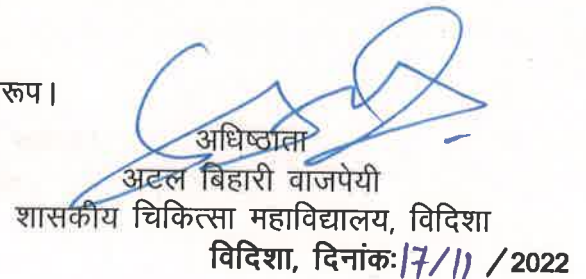 रूप।
अधिष्ठाता
अटल बिहारी वाजपेयी
शासकीय चिकित्सा महाविद्यालय, विदिशा
विदिशा, दिनांकः17/11 /2022